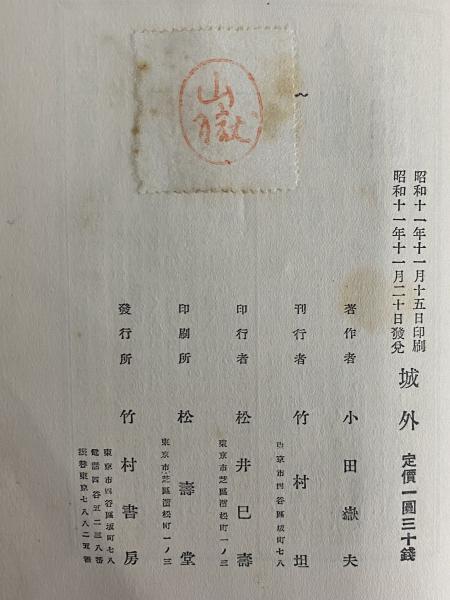 昭和十一年十一月十五日印刷
昭和十一年十一月二十日發兌
城外 定價一圓三十錢
著作者 小田嶽夫
刊行者 竹村坦
東京市四谷區坂町七八
印行者 松井巳壽
東京市芝區濱松町一ノ三
印刷所 松壽堂
東京市芝區濱松町一ノ三
發行所 竹村書房
東京市四谷區坂町七八
電話四谷五二三八番
振替東京七八八二五番